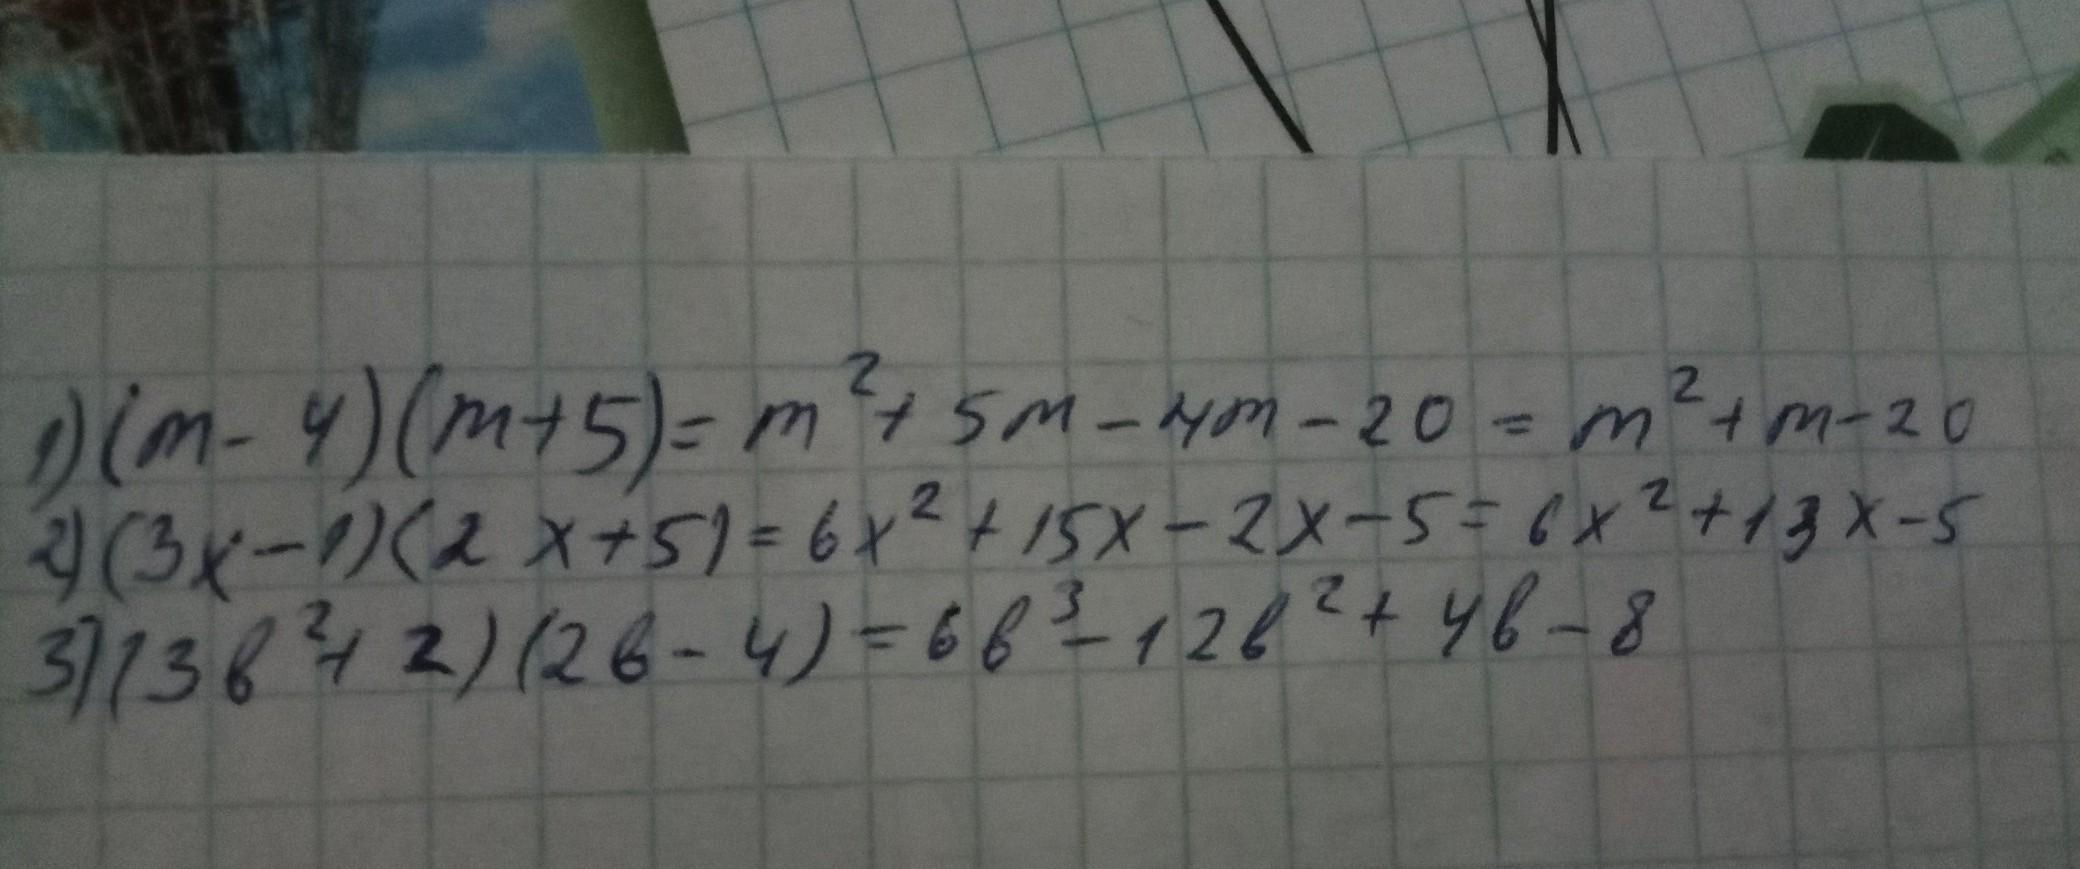 1) (m - 4)(m+5) = m² + 5m - 4m - 20 = m² + m - 20
2) (3x - 1)(2x+5) = 6x² + 15x - 2x - 5 = 6x² + 13x - 5
3) (3b² + 2)(2b - 4) = 6b³ - 12b² + 4b - 8